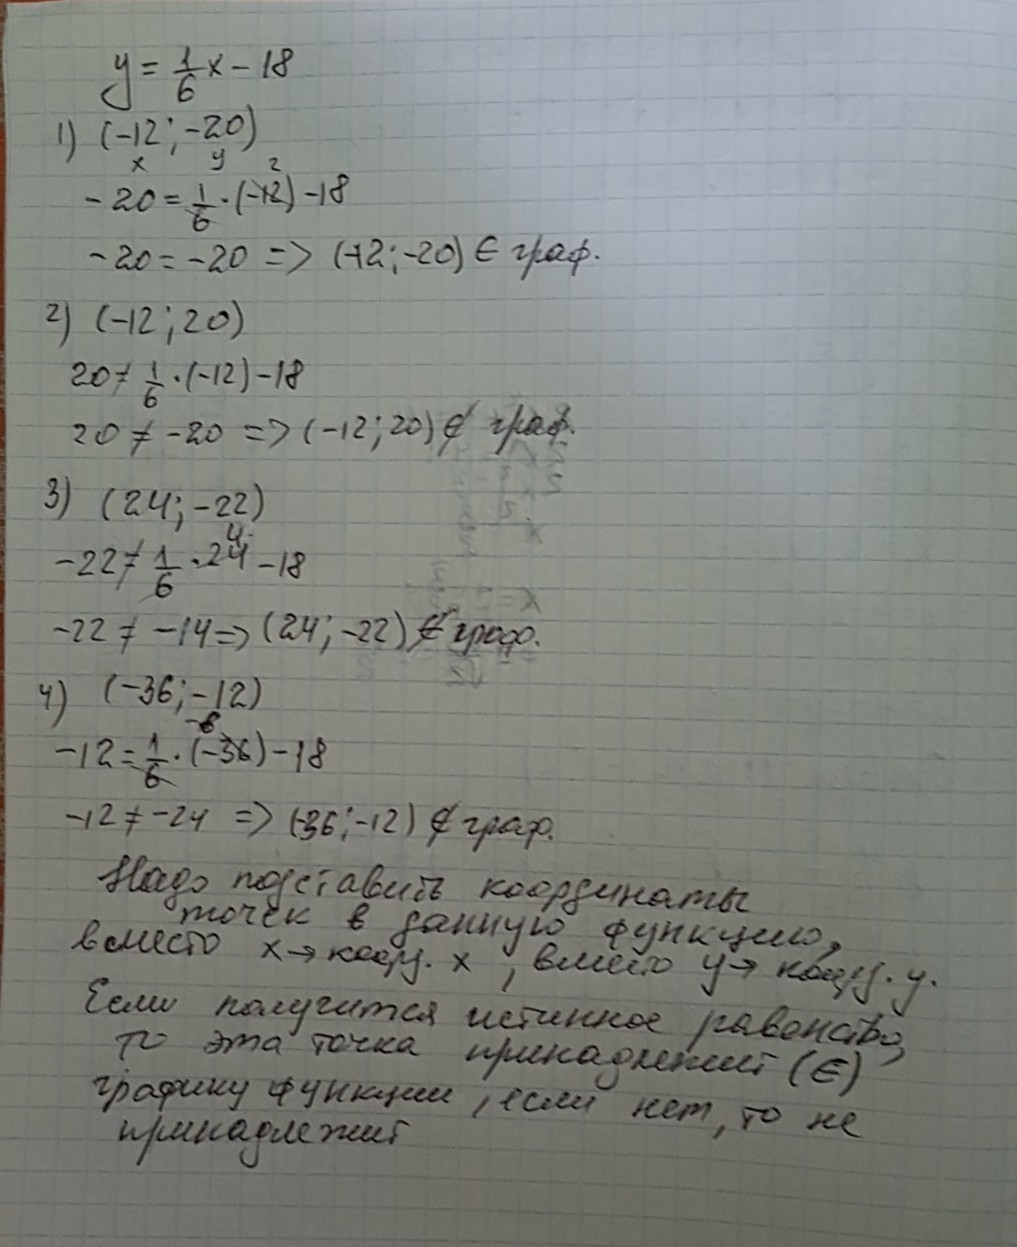 y = 1/6 x - 18
1) (-12; -20)
x y 2
-20 = 1/6 · (-12) - 18
-20 = -20 => (-12; -20) ∈ граф.
2) (-12; 20)
20 ≠ 1/6 · (-12) - 18
20 ≠ -20 => (-12; 20) ∉ граф.
3) (24; -22)
4
-22 ≠ 1/6 · 24 - 18
-22 ≠ -14 => (24; -22) ∉ граф.
4) (-36; -12)
-6
-12 = 1/6 · (-36) - 18
-12 ≠ -24 => (-36; -12) ∉ граф.
Надо подставить координаты
точек в данную функцию,
вместо x → коор. x, вместо y → коор. y.
Если получится истинное равенство,
то эта точка принадлежит (∈)
графику функции, если нет, то не
принадлежит